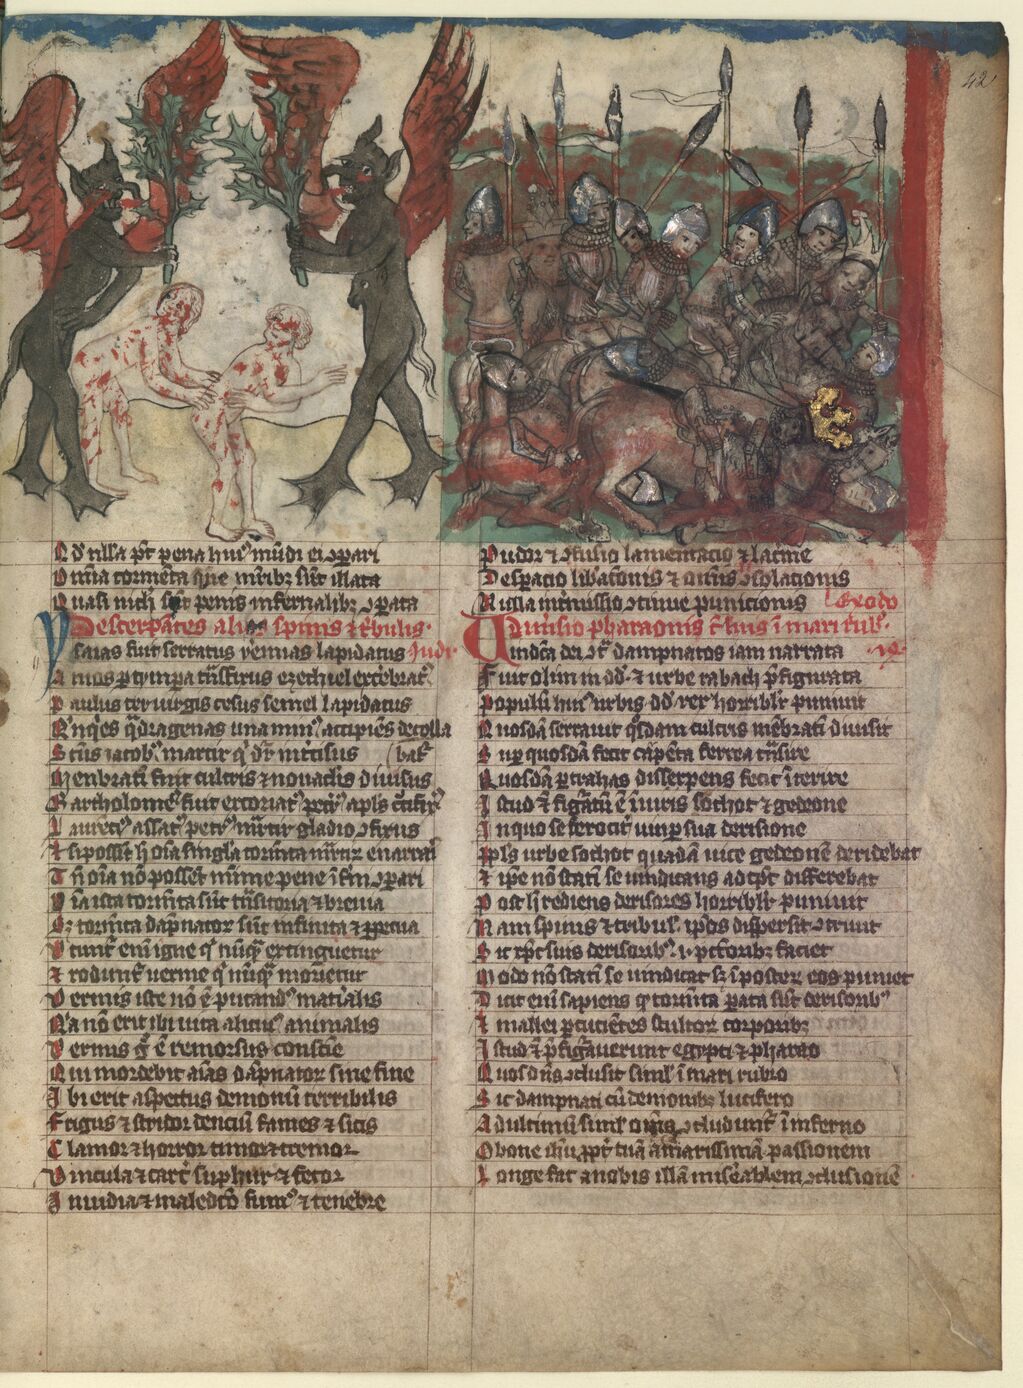 42
Qd' nulla pt' pena hui' mundi ei 9pari
Omnia tormenta que martiribz sunt illata
Quasi nichil sunt penis infernalibz 9parata
Descerpentes alios spinis et tribulis
Judi
saias fuit serratus ieremias lapidatus
Amos per tympora transfixus ezechiel excerebrat'
Paulus ter virgis cesus semel lapidatus
Quinquies quadragenas una minus accipiens decolla
bat'
Sctus iacob' martir qui dr mercisus
Menbratim fuit cultris et novaclis divisus
Bartholome' fuit excoriat' petr' apls crucifix'
Laurenti' assat' petr' martir gladio 9fixus
Et si possent hoc omnia singula tormenta martirum enarrari
Tn omnia non possent minime pene inferni 9pari
Omnia ista tormenta sunt transitoria et brevia
Sed tormenta dampnatorum sunt infinita et perpetua
Urunt' enim igne qui nunquam extinguetur
Et rodunt' verme qui nunquam morietur
Vermis iste non est putand' materialis
Quia non erit ibi vita alicui' animalis
Vermis ergo est remorsus conscientie
Qui mordebit animas dampnatorum sine fine
Ibi erit aspectus demonum terribilis
Frigus et stridor dencium fames et sitis
Clamor et horror timor et tremor
Vincula et carcer sulphur et fetor
Invidia et maledictio fumus et tenebre
Pudor et 9fusio lamentacio et lacrime
Desperacio liberationis et omnis 9solacionis
Nulla intermissio 9tinue punicionis
Exodo
Divisio pharaonis cum suis in mari rubro
Vindicta dei contra dampnatos iam narrata
Fuit olim in dd' et urbe rabach prefigurata
Populum huius urbis dd' rex horribiliter punivit
Quosdam serravit quosdam cultris membratim divisit
Super quosdam fecit carpenta ferrea transire
Quosdam pertrahas disserpens fecit interire
Istud etiam figuratum est in viris sochot et gedeone
In quo se ferociter vlti per sua derisione
Ppls urbe sochot quadam vice gedeonem deridebat
Et ipse non statim se vindicans ad tempus differebat
Post hec rediens derisores horribiliter punivit
Nam spinis et tribulis ipsos dispersit et trivit
Sic xpc suis derisoribus et peccatoribus faciet
Modo non statim se vindicat sed in posterum eos puniet
Dicit enim sapiens quod tormenta parata sunt derisoribus
Et mallei percucientes stultorum corporibus
Istud etiam prefiguraverunt egypti et pharao
Quos dns 9clusit simul in mari rubro
Sic dampnati cum demonibus lucifero
Ad ultimum simul omnes 9cludunt' in inferno
O bone ihesu propter tuam amarissimam passionem
Longe fac a nobis illam miserabilem 9clusionem